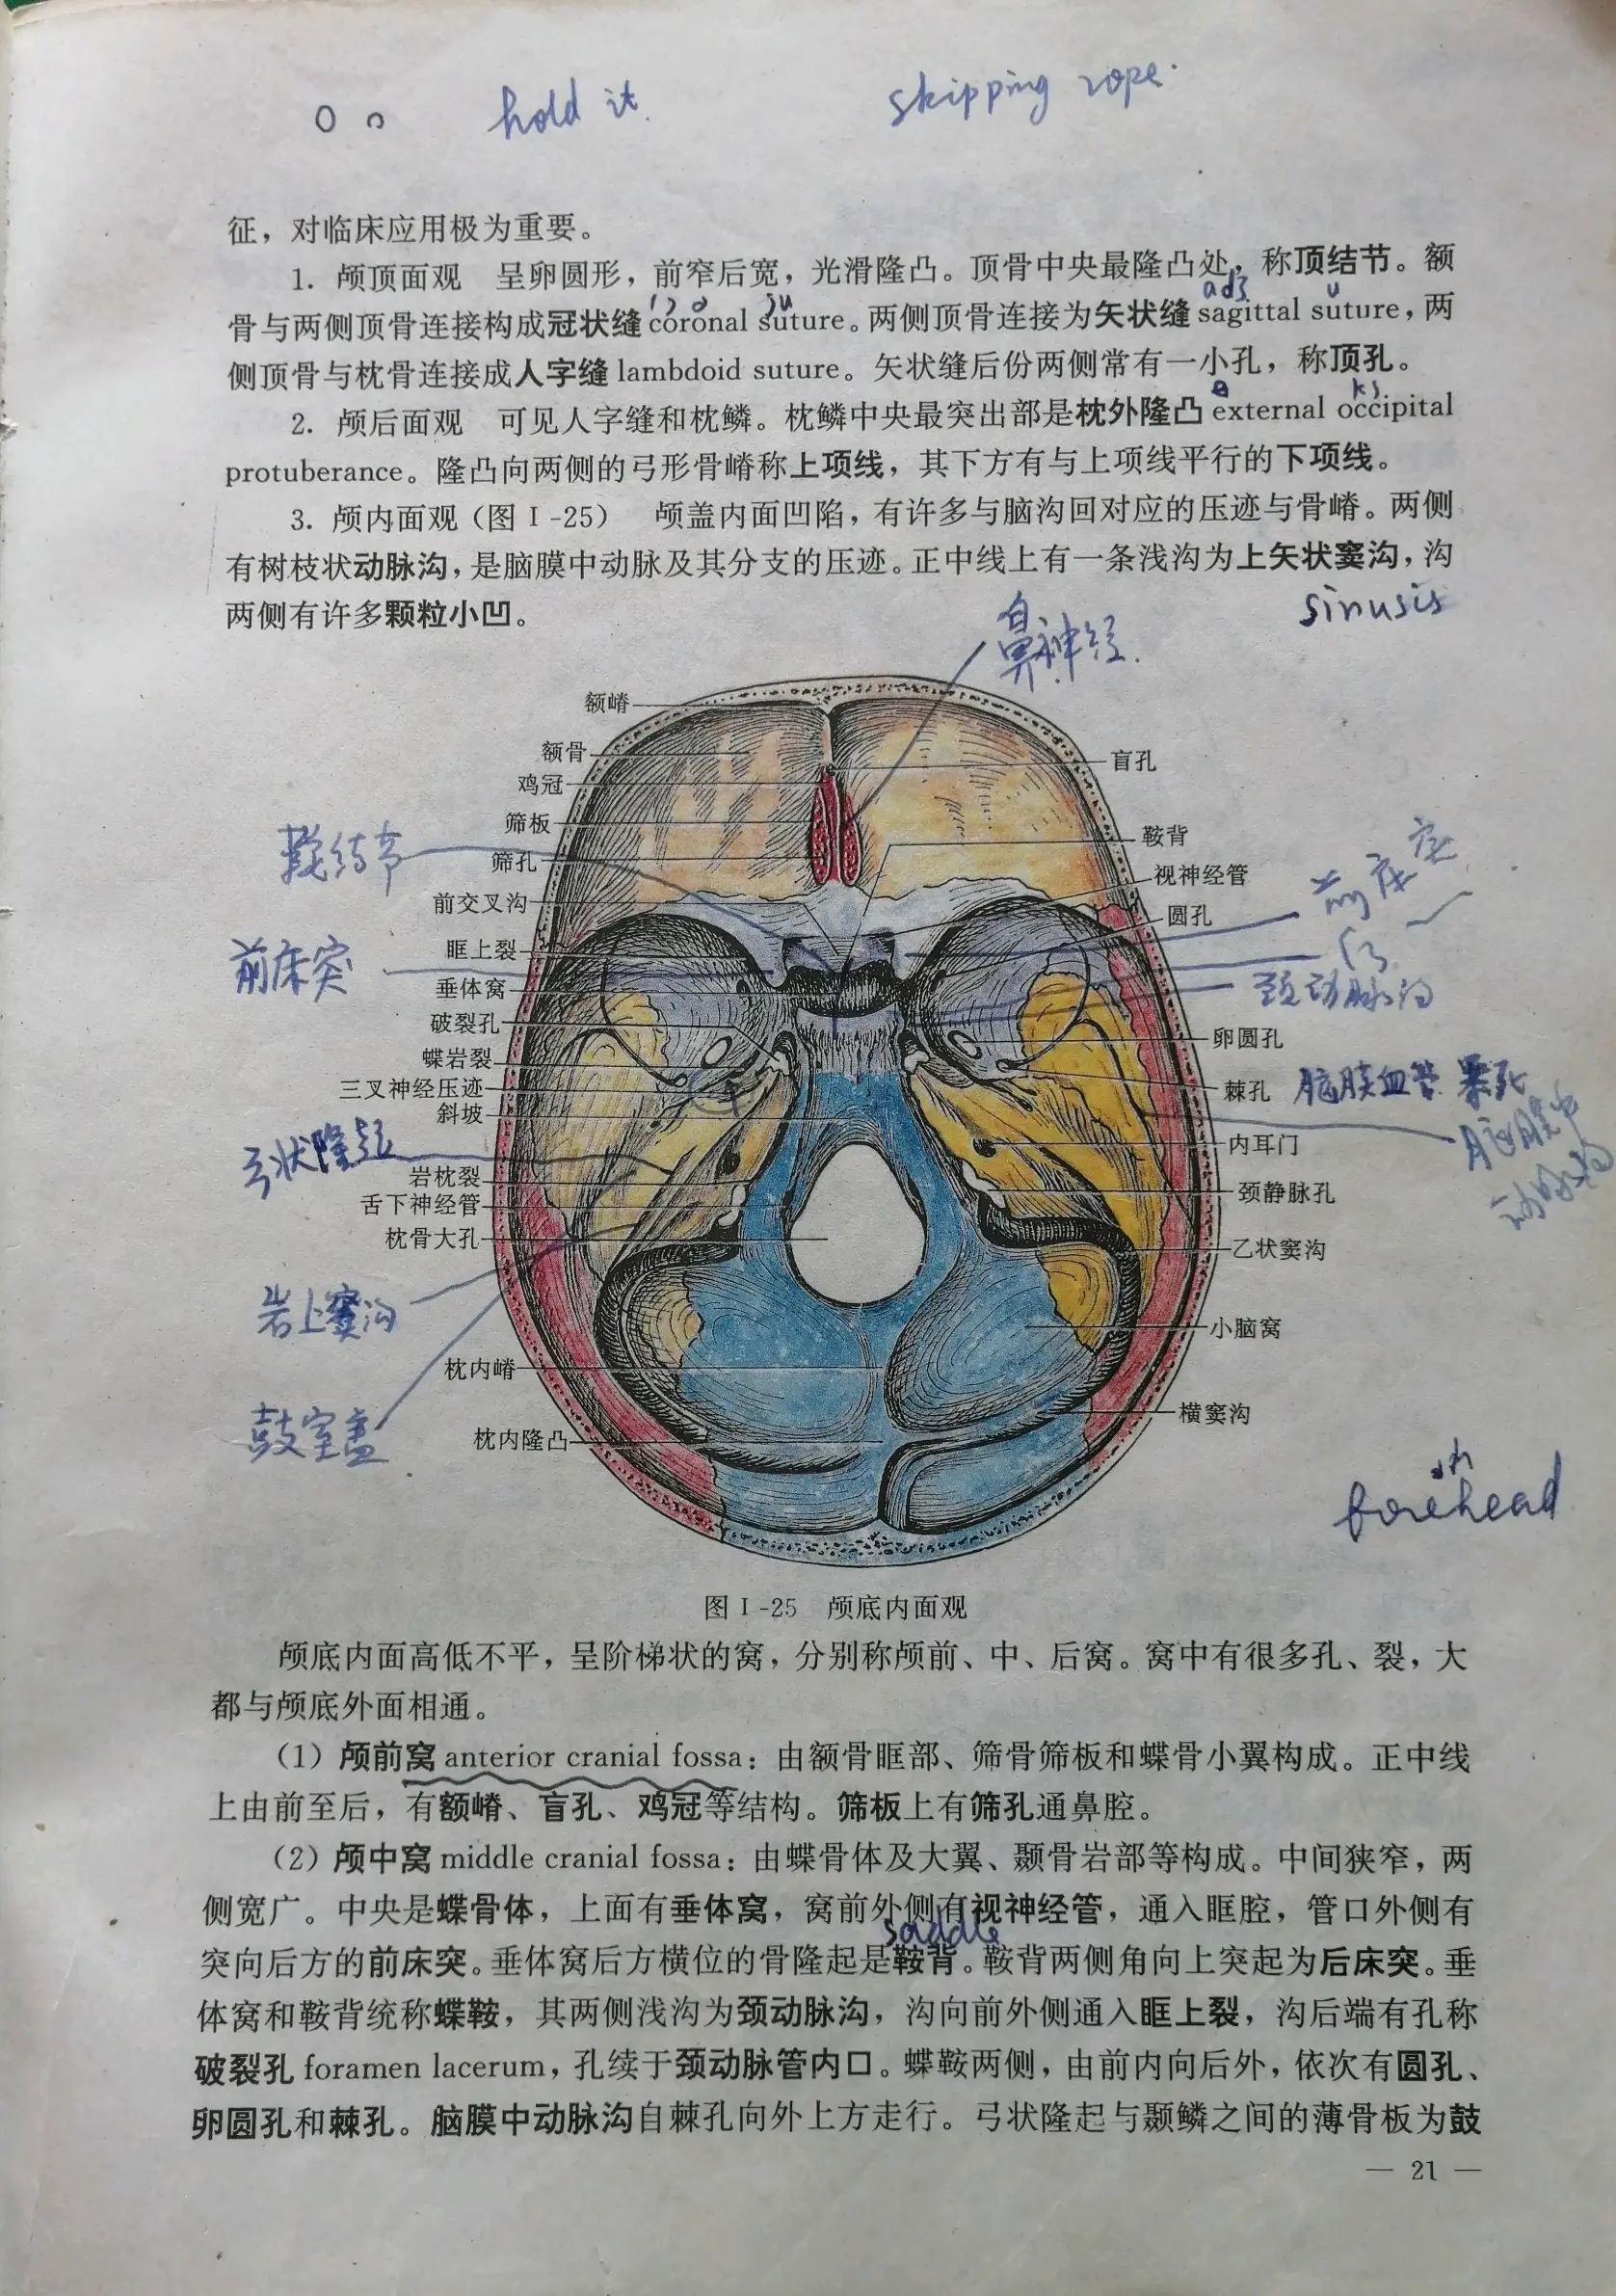 hold it.
skipping rope.
征，对临床应用极为重要。
1. 颅顶面观　呈卵圆形，前窄后宽，光滑隆凸。顶骨中央最隆凸处，称顶结节。额
骨与两侧顶骨连接构成冠状缝 coronal suture。两侧顶骨连接为矢状缝 sagittal suture，两
侧顶骨与枕骨连接成人字缝 lambdoid suture。矢状缝后份两侧常有一小孔，称顶孔。
2. 颅后面观　可见人字缝和枕鳞。枕鳞中央最突出部是枕外隆凸 external occipital
protuberance。隆凸向两侧的弓形骨嵴称上项线，其下方有与上项线平行的下项线。
3. 颅内面观（图Ⅰ-25）　颅盖内面凹陷，有许多与脑沟回对应的压迹与骨嵴。两侧
有树枝状动脉沟，是脑膜中动脉及其分支的压迹。正中线上有一条浅沟为上矢状窦沟，沟
两侧有许多颗粒小凹。
sinusis
鼻神经.
额嵴
额骨
鸡冠
筛板
筛孔
前交叉沟
眶上裂
垂体窝
破裂孔
蝶岩裂
三叉神经压迹
斜坡
岩枕裂
舌下神经管
枕骨大孔
枕内嵴
枕内隆凸
鞍结节
前床突
弓状隆起
岩上窦沟
鼓室盖
盲孔
鞍背
视神经管
圆孔
卵圆孔
棘孔
内耳门
颈静脉孔
乙状窦沟
小脑窝
横窦沟
前床突
颈动脉沟
脑膜血管
脑膜中
动脉沟
forehead
图Ⅰ-25　颅底内面观
颅底内面高低不平，呈阶梯状的窝，分别称颅前、中、后窝。窝中有很多孔、裂，大
都与颅底外面相通。
（1）颅前窝 anterior cranial fossa：由额骨眶部、筛骨筛板和蝶骨小翼构成。正中线
上由前至后，有额嵴、盲孔、鸡冠等结构。筛板上有筛孔通鼻腔。
（2）颅中窝 middle cranial fossa：由蝶骨体及大翼、颞骨岩部等构成。中间狭窄，两
侧宽广。中央是蝶骨体，上面有垂体窝，窝前外侧有视神经管，通入眶腔，管口外侧有
saddle
突向后方的前床突。垂体窝后方横位的骨隆起是鞍背。鞍背两侧角向上突起为后床突。垂
体窝和鞍背统称蝶鞍，其两侧浅沟为颈动脉沟，沟向前外侧通入眶上裂，沟后端有孔称
破裂孔 foramen lacerum，孔续于颈动脉管内口。蝶鞍两侧，由前内向后外，依次有圆孔、
卵圆孔和棘孔。脑膜中动脉沟自棘孔向外上方走行。弓状隆起与颞鳞之间的薄骨板为鼓
— 21 —